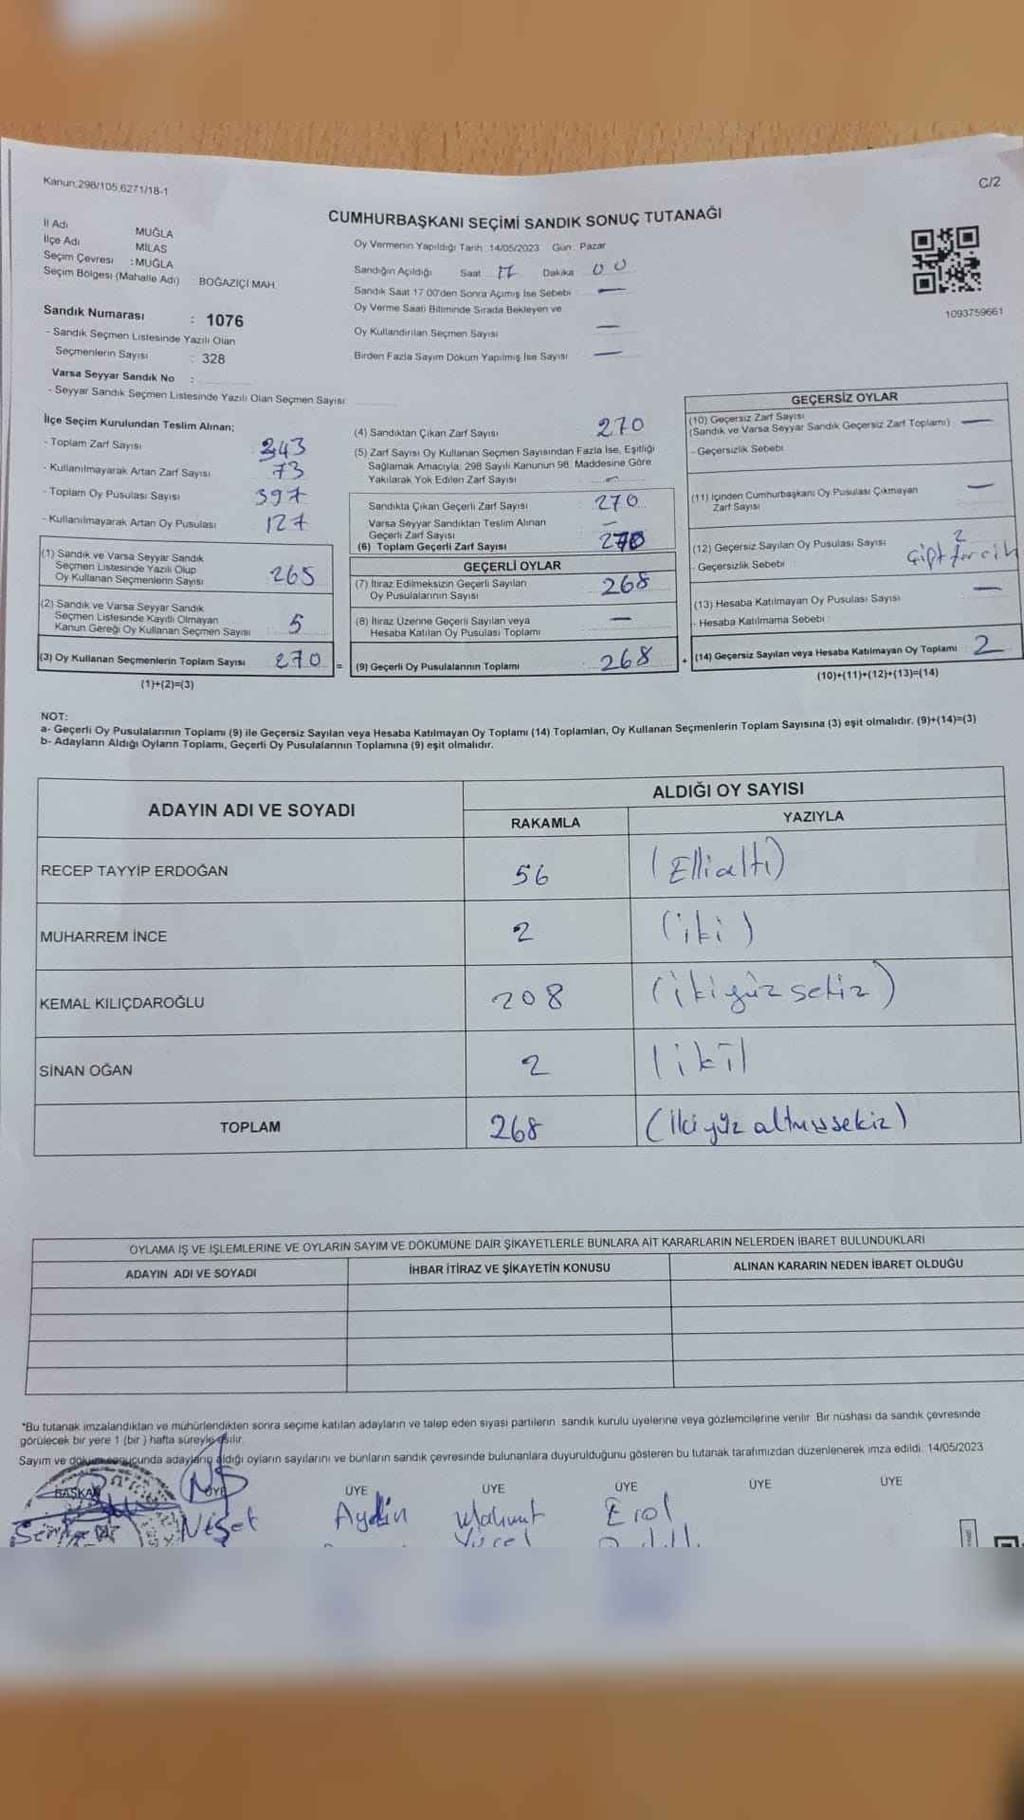 Kanun:298/105,6271/18-1
C/2
CUMHURBAŞKANI SEÇİMİ SANDIK SONUÇ TUTANAĞI
İl Adı MUĞLA
İlçe Adı MİLAS
Seçim Çevresi : MUĞLA
Seçim Bölgesi (Mahalle Adı) BOĞAZİÇİ MAH.
Oy Vermenin Yapıldığı Tarih : 14/05/2023 Gün : Pazar
Sandığın Açıldığı Saat 17 Dakika 00
Sandık Saat 17:00'den Sonra Açımış İse Sebebi —
Oy Verme Saati Bitiminde Sırada Bekleyen ve
Oy Kullandırılan Seçmen Sayısı —
Birden Fazla Sayım Döküm Yapılmış İse Sayısı —
1093759661
Sandık Numarası : 1076
- Sandık Seçmen Listesinde Yazılı Olan
Seçmenlerin Sayısı : 328
Varsa Seyyar Sandık No :
- Seyyar Sandık Seçmen Listesinde Yazılı Olan Seçmen Sayısı
İlçe Seçim Kurulundan Teslim Alınan;
- Toplam Zarf Sayısı 343
- Kullanılmayarak Artan Zarf Sayısı 73
- Toplam Oy Pusulası Sayısı 397
- Kullanılmayarak Artan Oy Pusulası 127
(1) Sandık ve Varsa Seyyar Sandık
Seçmen Listesinde Yazılı Olup
Oy Kullanan Seçmenlerin Sayısı 265
(2) Sandık ve Varsa Seyyar Sandık
Seçmen Listesinde Kayıtlı Olmayan
Kanun Gereği Oy Kullanan Seçmen Sayısı 5
(3) Oy Kullanan Seçmenlerin Toplam Sayısı 270 =
(1)+(2)=(3)
(4) Sandıktan Çıkan Zarf Sayısı 270
(5) Zarf Sayısı Oy Kullanan Seçmen Sayısından Fazla İse, Eşitliği
Sağlamak Amacıyla; 298 Sayılı Kanunun 98. Maddesine Göre
Yakılarak Yok Edilen Zarf Sayısı —
Sandıkta Çıkan Geçerli Zarf Sayısı 270
Varsa Seyyar Sandıktan Teslim Alınan
Geçerli Zarf Sayısı —
(6) Toplam Geçerli Zarf Sayısı 270
GEÇERLİ OYLAR
(7) İtiraz Edilmeksizin Geçerli Sayılan
Oy Pusulalarının Sayısı 268
(8) İtiraz Üzerine Geçerli Sayılan veya
Hesaba Katılan Oy Pusulası Toplamı —
(9) Geçerli Oy Pusulalarının Toplamı 268 +
GEÇERSİZ OYLAR
(10) Geçersiz Zarf Sayısı
(Sandık ve Varsa Seyyar Sandık Geçersiz Zarf Toplamı) —
- Geçersizlik Sebebi
(11) İçinden Cumhurbaşkanı Oy Pusulası Çıkmayan
Zarf Sayısı —
(12) Geçersiz Sayılan Oy Pusulası Sayısı 2
- Geçersizlik Sebebi Çift tercih
(13) Hesaba Katılmayan Oy Pusulası Sayısı —
- Hesaba Katılmama Sebebi :
(14) Geçersiz Sayılan veya Hesaba Katılmayan Oy Toplamı 2
(10)+(11)+(12)+(13)=(14)
NOT:
a- Geçerli Oy Pusulalarının Toplamı (9) ile Geçersiz Sayılan veya Hesaba Katılmayan Oy Toplamı (14) Toplamları, Oy Kullanan Seçmenlerin Toplam Sayısına (3) eşit olmalıdır. (9)+(14)=(3)
b- Adayların Aldığı Oyların Toplamı, Geçerli Oy Pusulalarının Toplamına (9) eşit olmalıdır.
ADAYIN ADI VE SOYADI ALDIĞI OY SAYISI
RAKAMLA YAZIYLA
RECEP TAYYİP ERDOĞAN 56 (Ellialtı)
MUHARREM İNCE 2 (iki)
KEMAL KILIÇDAROĞLU 208 (ikiyüz sekiz)
SİNAN OĞAN 2 (iki)
TOPLAM 268 (İkiyüz altmışsekiz)
OYLAMA İŞ VE İŞLEMLERİNE VE OYLARIN SAYIM VE DÖKÜMÜNE DAİR ŞİKAYETLERLE BUNLARA AİT KARARLARIN NELERDEN İBARET BULUNDUKLARI
ADAYIN ADI VE SOYADI İHBAR İTİRAZ VE ŞİKAYETİN KONUSU ALINAN KARARIN NEDEN İBARET OLDUĞU
*Bu tutanak imzalandıktan ve mühürlendikten sonra seçime katılan adayların ve talep eden siyasi partilerin sandık kurulu üyelerine veya gözlemcilerine verilir. Bir nüshası da sandık çevresinde
görülecek bir yere 1 (bir) hafta süreyle asılır.
Sayım ve döküm sonucunda adayların aldığı oyların sayılarını ve bunların sandık çevresinde bulunanlara duyurulduğunu gösteren bu tutanak tarafımızdan düzenlenerek imza edildi. 14/05/2023
BAŞKAN ÜYE ÜYE ÜYE ÜYE ÜYE ÜYE
Neşet Aydın Mahmut Erol
Yücel